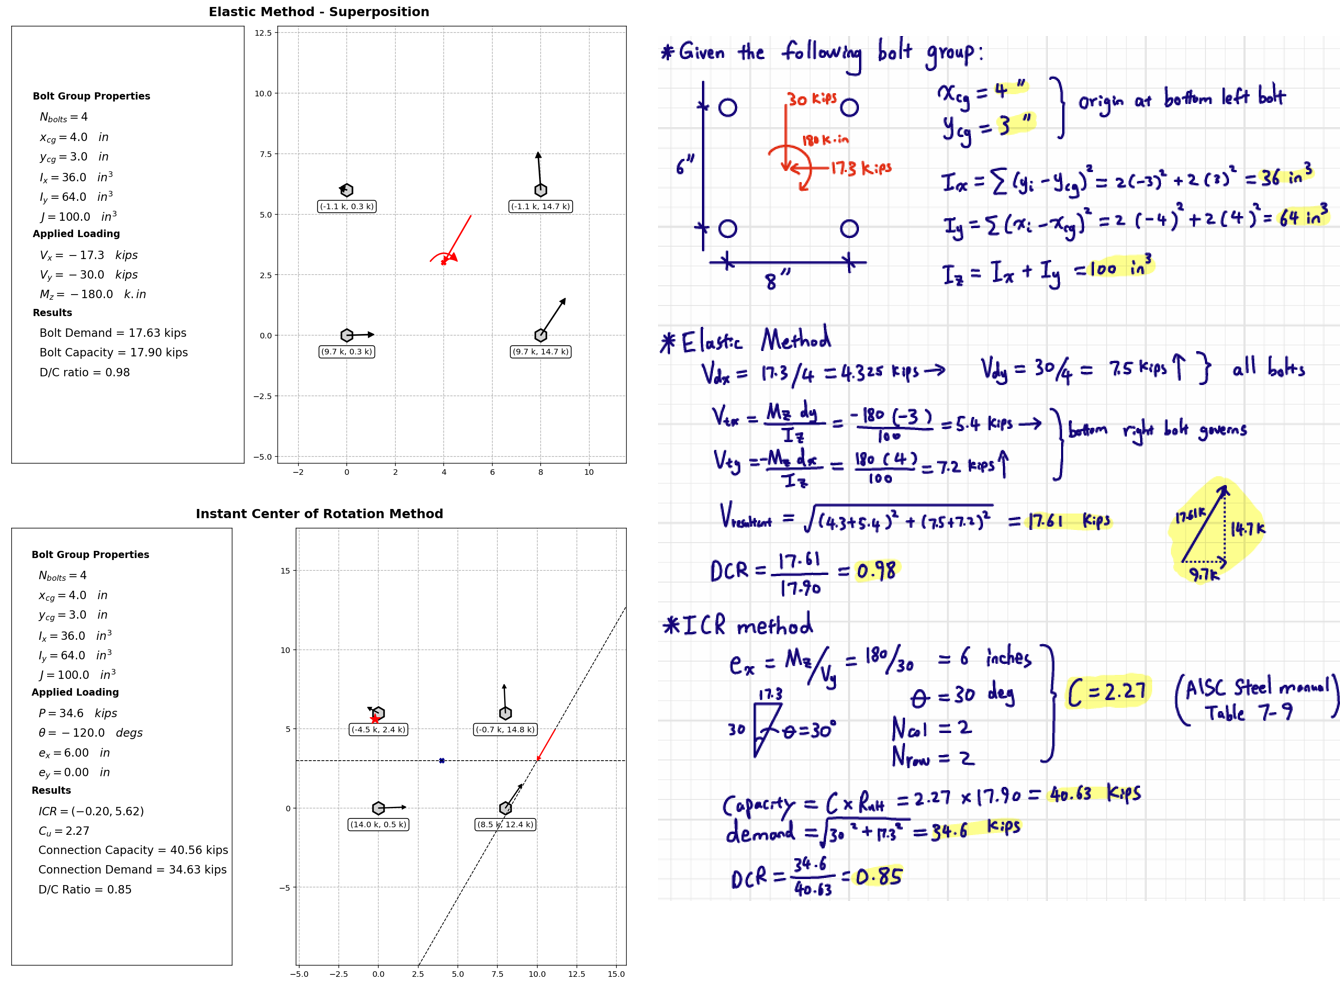 Elastic Method - Superposition
Bolt Group Properties
N_bolts = 4
x_cg = 4.0 in
y_cg = 3.0 in
I_x = 36.0 in³
I_y = 64.0 in³
J = 100.0 in³
Applied Loading
V_x = −17.3 kips
V_y = −30.0 kips
M_z = −180.0 k.in
Results
Bolt Demand = 17.63 kips
Bolt Capacity = 17.90 kips
D/C ratio = 0.98
12.5
10.0
7.5
5.0
2.5
0.0
−2.5
−5.0
(-1.1 k, 0.3 k)
(-1.1 k, 14.7 k)
(9.7 k, 0.3 k)
(9.7 k, 14.7 k)
−2 0 2 4 6 8 10
Instant Center of Rotation Method
Bolt Group Properties
N_bolts = 4
x_cg = 4.0 in
y_cg = 3.0 in
I_x = 36.0 in³
I_y = 64.0 in³
J = 100.0 in³
Applied Loading
P = 34.6 kips
θ = −120.0 degs
e_x = 6.00 in
e_y = 0.00 in
Results
ICR = (−0.20, 5.62)
C_u = 2.27
Connection Capacity = 40.56 kips
Connection Demand = 34.63 kips
D/C Ratio = 0.85
15
10
5
0
−5
(-4.5 k, 2.4 k)
(-0.7 k, 14.8 k)
(14.0 k, 0.5 k)
(8.5 k, 12.4 k)
−5.0 −2.5 0.0 2.5 5.0 7.5 10.0 12.5 15.0
* Given the following bolt group:
30 kips
180 k.in
17.3 kips
6"
8"
x_cg = 4"
y_cg = 3"
origin at bottom left bolt
I_x = Σ(y_i - y_cg)² = 2(-3)² + 2(3)² = 36 in³
I_y = Σ(x_i - x_cg)² = 2(-4)² + 2(4)² = 64 in³
I_z = I_x + I_y = 100 in³
* Elastic Method
V_dx = 17.3/4 = 4.325 kips → V_dy = 30/4 = 7.5 kips ↑ } all bolts
V_tx = M_z dy / I_z = -180(-3) / 100 = 5.4 kips →
V_ty = -M_z dx / I_z = 180(4) / 100 = 7.2 kips ↑
bottom right bolt governs
V_resultant = √((4.3+5.4)² + (7.5+7.2)²) = 17.61 kips
17.61k
14.7k
9.7k
DCR = 17.61 / 17.90 = 0.98
* ICR method
e_x = M_z/V_y = 180/30 = 6 inches
17.3
30
θ=30°
θ = 30 deg
N_col = 2
N_row = 2
C = 2.27
(AISC Steel manual)
Table 7-9
Capacity = C x R_ult = 2.27 x 17.90 = 40.63 kips
demand = √(30² + 17.3²) = 34.6 kips
DCR = 34.6 / 40.63 = 0.85